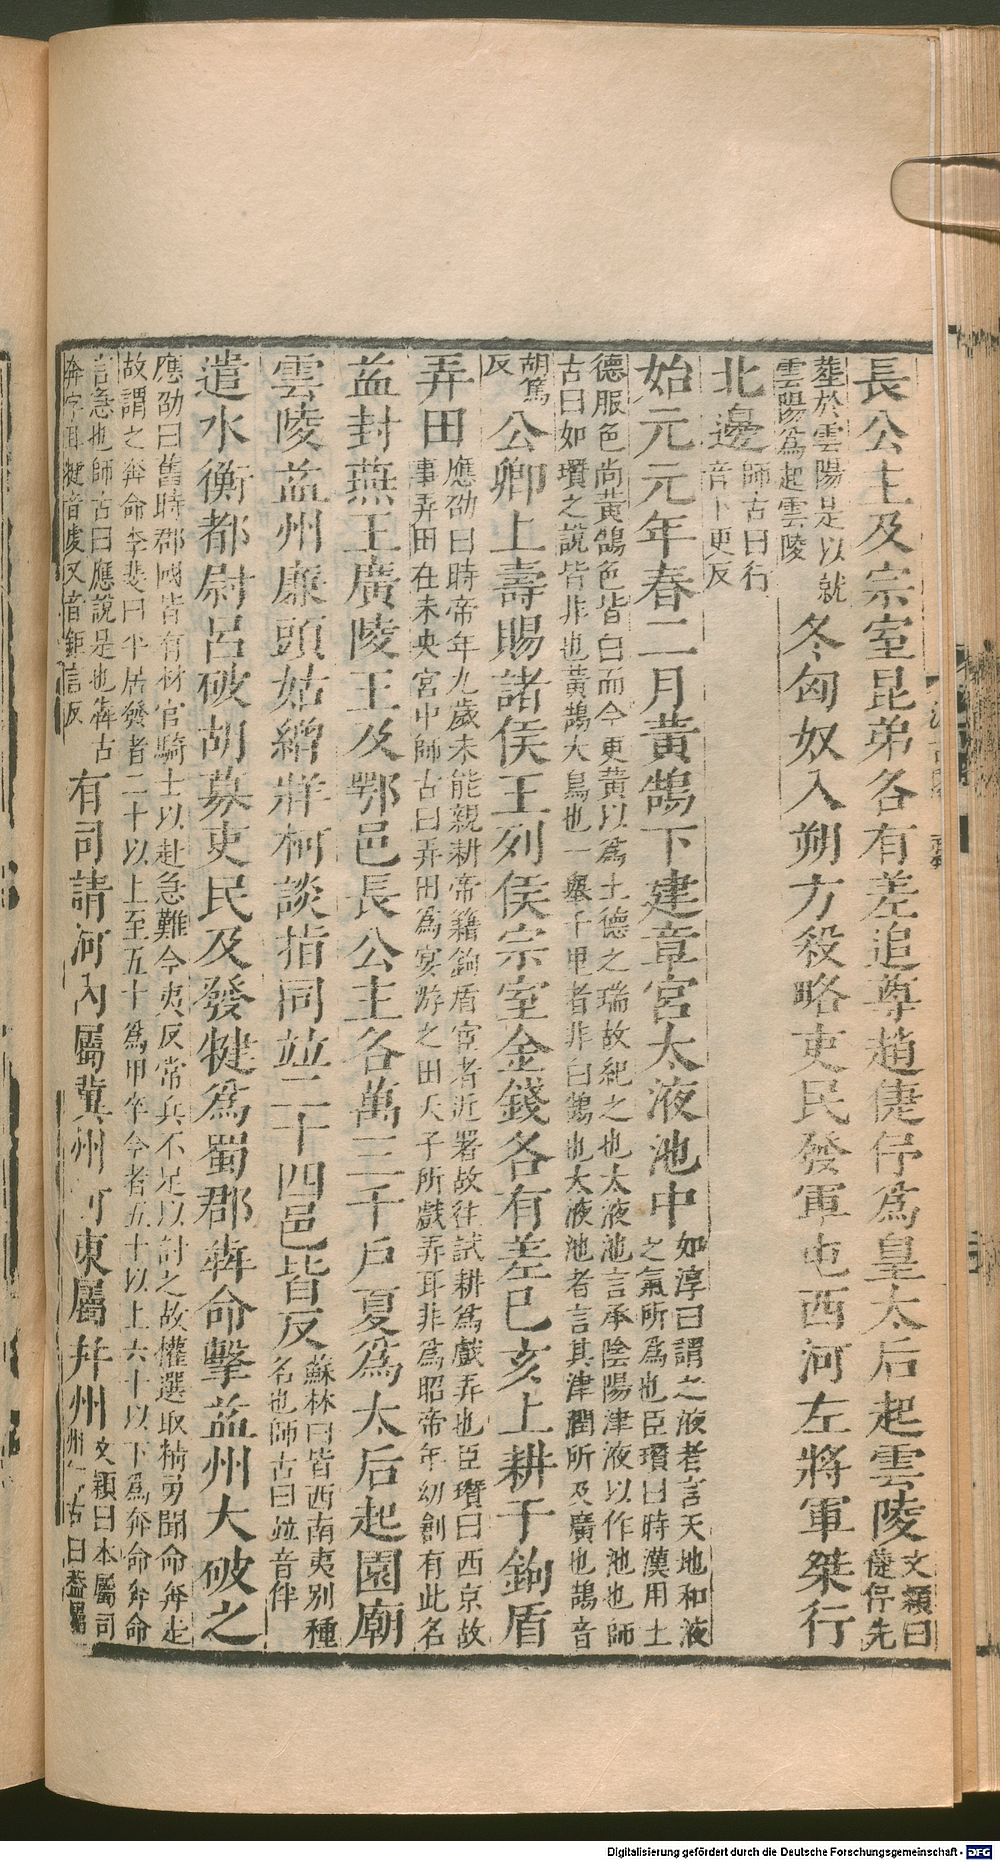 長公主及宗室昆弟各有差追尊趙倢伃爲皇太后起雲陵
文穎曰
倢伃先
葬於雲陽是以就
雲陽爲起雲陵
冬匈奴入朔方殺略吏民發軍屯西河左將軍桀行
北邊
師古曰行
音下更反
始元元年春二月黃鵠下建章宮太液池中
如淳曰謂之液者言天地和液
之氣所爲也臣瓚曰時漢用土
德服色尚黃鵠色皆白而今更黃以爲土德之瑞故紀之也太液池言承陰陽津液以作池也師
古曰如瓚之說皆非也黃鵠大鳥也一舉千里者非白鵠也太液池者言其津潤所及廣也鵠音
胡篤
反
公卿上壽賜諸侯王列侯宗室金錢各有差己亥上耕于鉤盾
弄田
應劭曰時帝年九歲未能親耕帝籍鉤盾宦者近署故往試耕爲戲弄也臣瓚曰西京故
事弄田在未央宮中師古曰弄田爲宴游之田天子所戲弄耳非爲昭帝年幼創有此名
益封燕王廣陵王及鄂邑長公主各萬三千戶夏爲太后起園廟
雲陵益州廉頭姑繒牂柯談指同竝二十四邑皆反
蘇林曰皆西南夷別種
名也師古曰竝音伴
遣水衡都尉呂破胡募吏民及發犍爲蜀郡犇命擊益州大破之
應劭曰舊時郡國皆有材官騎士以赴急難今夷反常兵不足以討之故權選取精勇聞命奔走
故謂之奔命李斐曰平居發者二十以上至五十爲甲卒今者五十以上六十以下爲奔命奔命
言急也師古曰應說是也犇古
奔字耳犍音虔又音鉅言反
有司請河內屬冀州河東屬幷州
文穎曰本屬司
州師古曰蓋屬
Digitalisierung gefördert durch die Deutsche Forschungsgemeinschaft - DFG